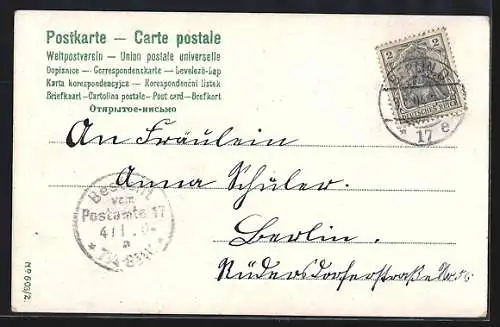 Postkarte — Carte postale
Weltpostverein — Union postale universelle
Dopisnice — Correspondenzkarte — Levelező-Lap
Karta korespondencyjna — Korespondenční lístek
Briefkaart — Cartolina postale — Post card — Brefkort
Открытое-письмо
2 2
DEUTSCHES REICH
17 e
An Fräulein
Anna Schüler.
Berlin.
Rüdersdorferstraße No 56
Bestellt
vom
Postamte 17
4/1.04